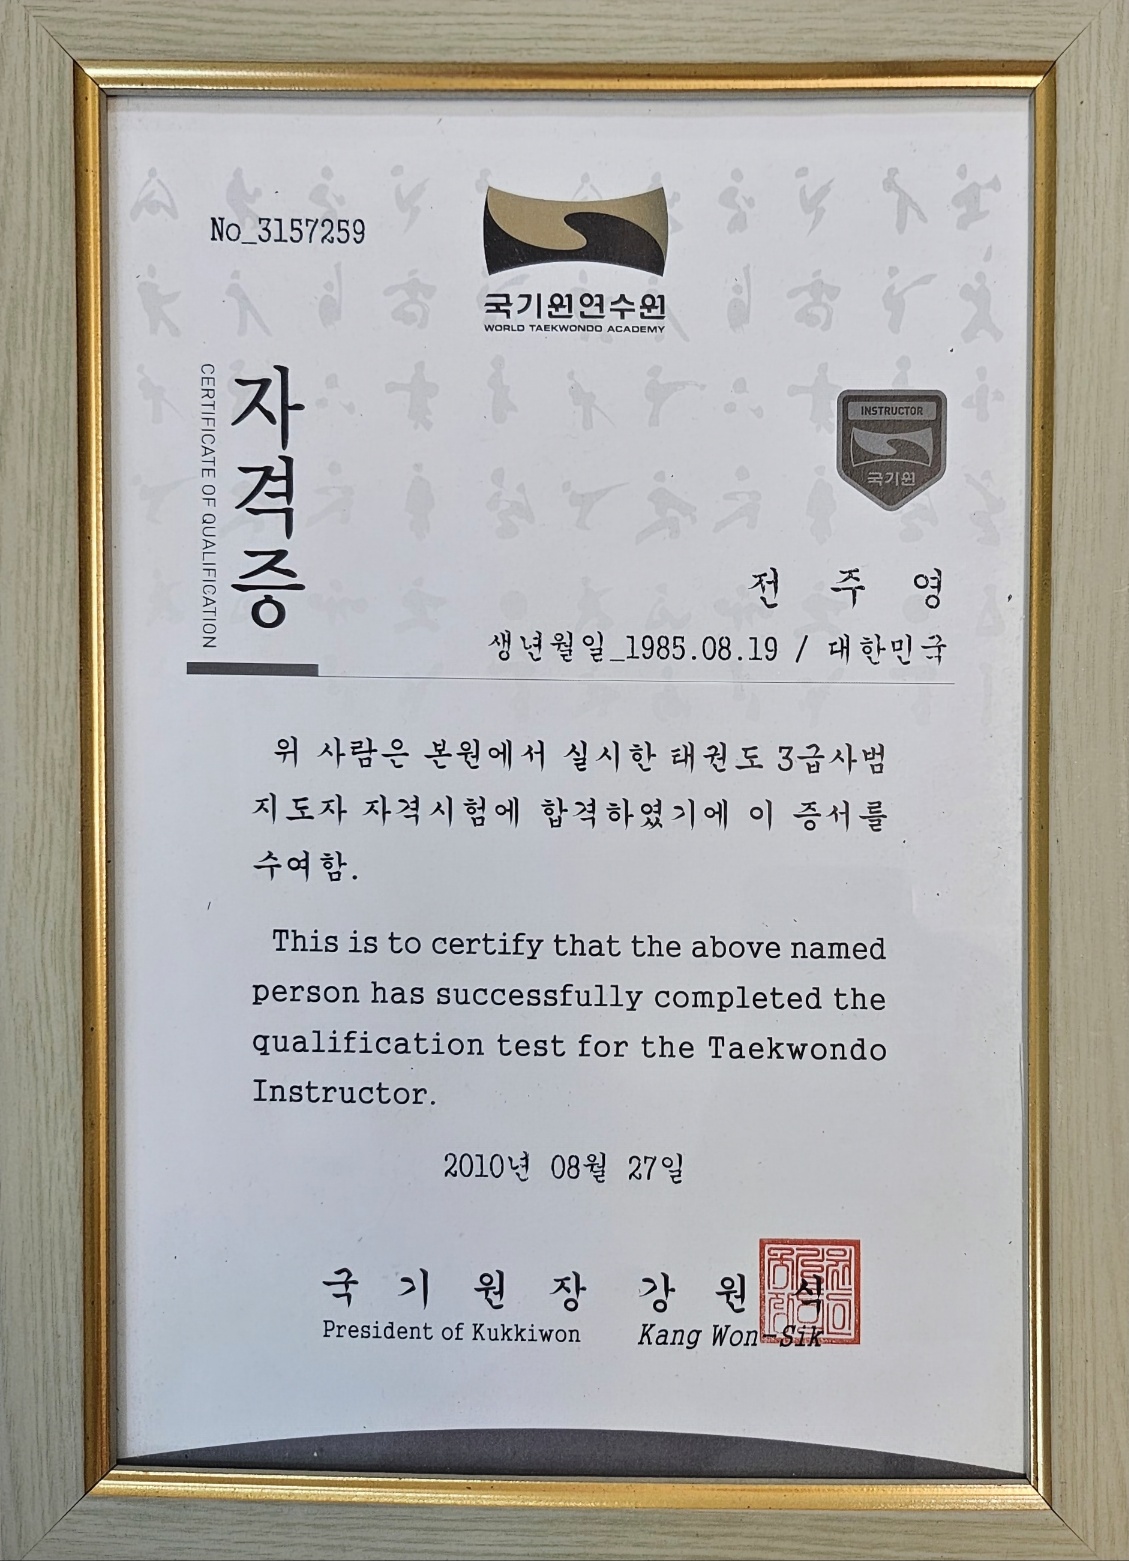 No_3157259
국기원연수원
WORLD TAEKWONDO ACADEMY
자격증
CERTIFICATE OF QUALIFICATION
INSTRUCTOR
국기원
전 주 영
생년월일_1985.08.19 / 대한민국
위 사람은 본원에서 실시한 태권도 3급사범
지도자 자격시험에 합격하였기에 이 증서를
수여함.
This is to certify that the above named
person has successfully completed the
qualification test for the Taekwondo
Instructor.
2010년 08월 27일
국 기 원 장 강 원 식
President of Kukkiwon Kang Won-Sik